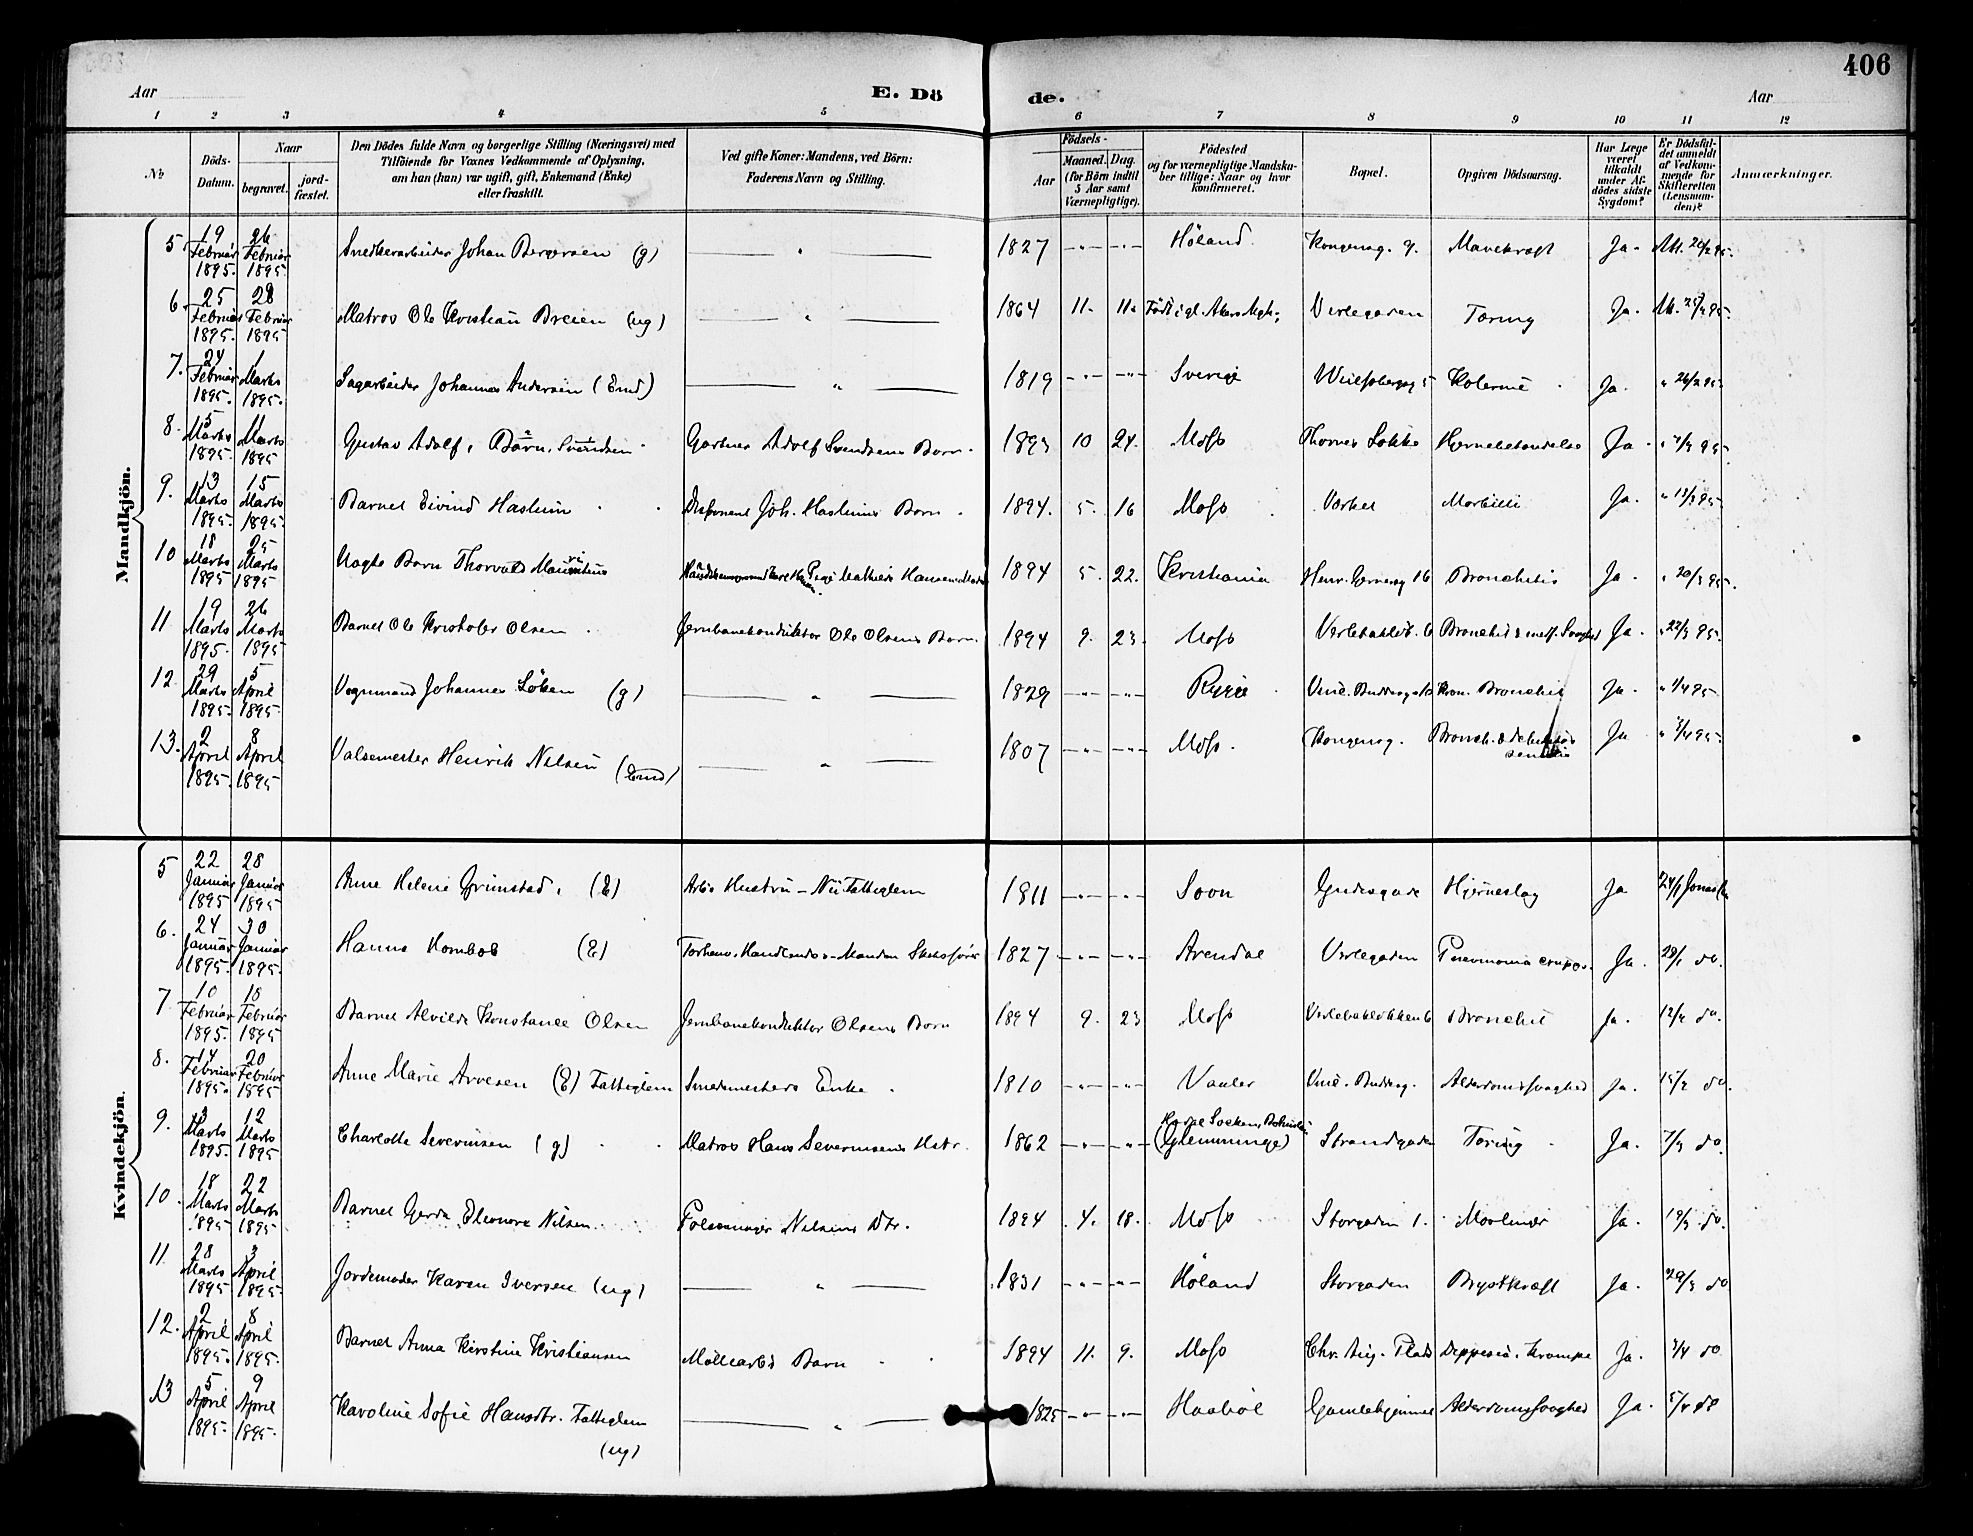 406
Aar E. Dö de. Aar
1 2 3 4 5 6 7 8 9 10 11 12
№
Döds-Datum.
Naar
begravet.
jord-fæstet.
Den Dödes fulde Navn og borgerlige Stilling (Næringsvei) med
Tilföiende for Voxnes Vedkommende af Oplysning,
om han (hun) var ugift, gift, Enkemand (Enke)
eller fraskilt.
Ved gifte Koner: Mandens, ved Börn:
Faderens Navn og Stilling.
Födsels-
Aar
Maaned. Dag.
(for Börn indtil
5 Aar samt
Værnepligtige).
Födested
og for værnepligtige Mandsku-
ber tillige: Naar og hvor
konfirmeret.
Bopæl.
Opgiven Dödsaarsag.
Har Læge
været
tilkaldt
under Af-
dödes sidste
Sygdom?
Er Dödsfal-
det anmeldt
af Vedkom-
mende for
Skifteretten
(Lensman-
den)?
Anmærkninger.
Mandkjön.
5 19 Februar 1895. 26 Februar 1895. Snedkerarbeider Johan Bergersen (g) — " — 1827 -"- -"- Höland Kongensg. 9. Mavekræft Ja. Att. 20/2 95.
6. 25 Februar 1895. 28 Februar 1895 Matros Ole Kristian Breien (ug) — " — 1864 11. 11. Født i gl. Akers Tæring Ja. Att. 25/2 95.
7. 24 Februar 1895. 1 Marts 1895. Sagarbeider Johannes Andersen (Emd) — " — 1819 -"- -"- Sverige 5 Ja. " 26/2 95.
8. 5 Marts 1895. 11 Marts 1895 Gustav Adolf, Barn, Svendsen Gartner Adolf Svendsens Barn. 1893 10 24. Moss Thornes Løkke Ja. 95.
9. 13 Marts 1895. 15 Marts 1895 Barnet Eivind Haslum Disponent Joh. Haslums Barn. 1894. 5. 16 Moss Værket Morbilli Ja. " 95.
10 18 Marts 1895 25 Marts 1895 Uægte Barn Thorvald Hansen 1894 5. 22. Kristiania Henr. 16 Bronchitis Ja. " 20/3 95.
11 19 Marts 1895. 26 Marts 1895 Barnet Ole Kristofer Olsen Jernbanekonduktør Ole Olsens Barn. 1894 9. 23. Moss 6 Bronchit & Ja. " 22/3 95.
12 29 Marts 1895. 5 April 1895 Vognmand Johannes Løken (g) — " — 1829 -"- -"- Rygge kron. Bronchit Ja. " 1/4 95.
13. 2 April 1895. 8 April 1895 Valsemester Henrik Nilsen (Emd) — " — 1807 -"- -"- Moss. Kongensg. Bronch. & senilis Ja " 95.
Kvindekjön.
5 22 Januar 1895 28 Januar 1895 Anne Helene Grimstad, (E) Arbs Hustru – Nu Fattiglem 1811 -"- -"- Soon Hjerneslag Ja 24/1
6. 24 Januar 1895. 30 Januar 1895. Hanna (E) 1827 -"- -"- Arendal Værlegaden Pneumonia crupøs. Ja. 29/1 do.
7 10 Februar 1895. 18 Februar 1895 Barnet Alvilde Konstance Olsen Jernbanekonduktør Olsens Barn 1894 9. 23 Moss 6 Bronchit Ja. 12/2 do.
8. 14 Februar 1895. 20 Februar 1895 Anne Marie Arvesen (E) Fattiglem Smedmesters Enke 1810 -"- -"- Vaaler Alderdomssvaghed Ja. 15/2 do.
9. 3 Marts 1895. 12 Marts 1895 Charlotte Severinsen (g) Matros Hans Severinsens Hstr. 1862 -"- -"- (Glemminge) Strandgaden Tæring Ja. 7/3 do.
10. 18 Marts 1895 22 Marts 1895 Barnet Gerda Eleonore Nilsen Nilsens Dtr. 1894 4. 18. Moss Storgaden 1. Ja. 19/3 do.
11 28 Marts 1895 3 April 1895. Jordemoder Karen Iversen (ug) — " — 1831 -"- -"- Höland Storgaden Brystkræft Ja. 29/3 do
12. 2 April 1895. 8 April 1895. Barnet Anna Kirstine Kristiansen Møllearbs Barn 1894 11. 9. Moss Chr. Aug. Plads Krampe Ja. do
13 5 April 1895. 9 April 1895. Karoline Sofie Hansdtr. Fattiglem (ug) — " — 1825 -"- -"- Haabøl Gamlehjemmet Alderdomssvaghed Ja. 5/4 do